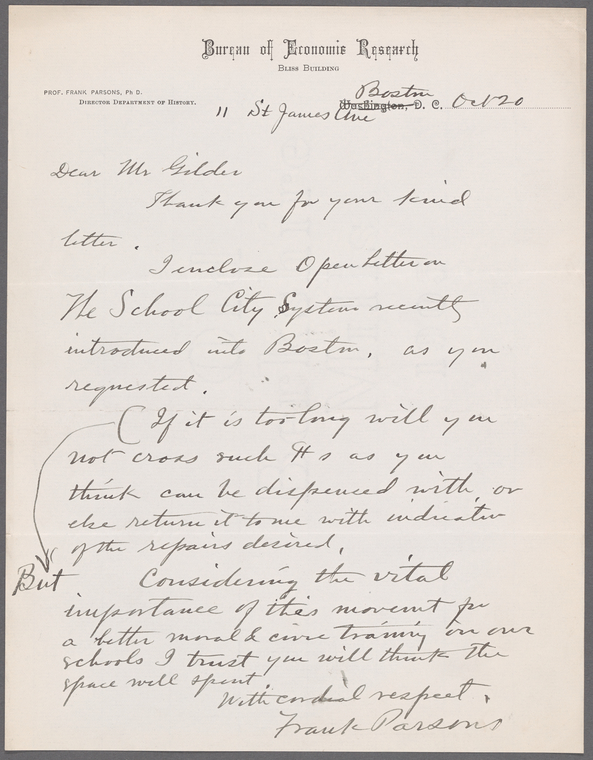 Bureau of Economic Research
Bliss Building
Prof. Frank Parsons, Ph D.
Director Department of History.
Boston
Washington, D. C. Oct 20
11 St James Ave
Dear Mr Gilder
Thank you for your kind
letter.
I enclose Open Letter on
The School City System recently
introduced into Boston, as you
requested.
(If it is too long will you
not cross such ¶s as you
think can be dispenced with, or
else return it to me with indication
of the repairs desired.
But Considering the vital
importance of this movemt for
a better moral & civic training in our
schools I trust you will think the
space well spent.
With cordial respect,
Frank Parsons